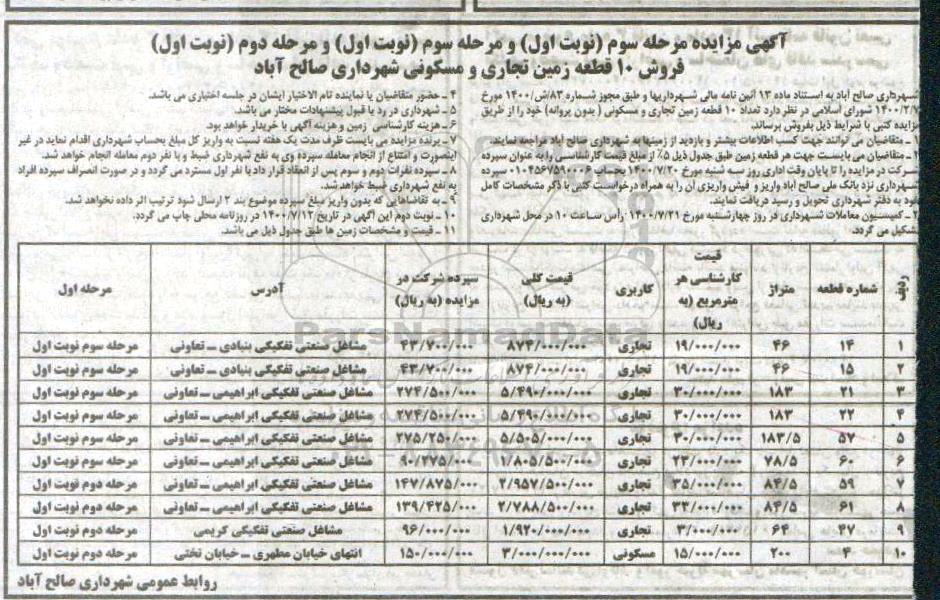 آگهی مزایده مرحله سوم (نوبت اول) و مرحله سوم (نوبت اول) و مرحله دوم (نوبت اول)
فروش ۱۰ قطعه زمین تجاری و مسکونی شهرداری صالح آباد
شهرداری صالح آباد به استناد ماده ۱۳ آئین نامه مالی شهرداریها و طبق مجوز شماره ۸۳/ش/۱۴۰۰ مورخ
۱۴۰۰/۲/۷ شورای اسلامی در نظر دارد تعداد ۱۰ قطعه زمین تجاری و مسکونی ( بدون پروانه) خود را از طریق
مزایده کتبی با شرایط ذیل بفروش برساند.
۱ـ متقاضیان می توانند جهت کسب اطلاعات بیشتر و بازدید از زمینها به شهرداری صالح آباد مراجعه نمایند.
۲ـ متقاضیان می بایست جهت هر قطعه زمین طبق جدول ذیل ۵٪ از مبلغ قیمت کارشناسی را به عنوان سپرده
شرکت در مزایده را تا پایان وقت اداری روز سه شنبه مورخ ۱۴۰۰/۷/۲۰ بحساب ۰۱۰۴۵۶۷۵۹۰۰۰۶ سپرده
شهرداری نزد بانک ملی صالح آباد واریز و فیش واریزی آن را به همراه درخواست کتبی با ذکر مشخصات کامل
خود به دفتر شهرداری تحویل و رسید دریافت نمایند.
۳ـ کمیسیون معاملات شهرداری در روز چهارشنبه مورخ ۱۴۰۰/۷/۲۱ رأس ساعت ۱۰ در محل شهرداری
تشکیل می گردد.
۴ ـ حضور متقاضیان یا نماینده تام الاختیار ایشان در جلسه اختیاری می باشد.
۵ ـ شهرداری در رد یا قبول پیشنهادات مختار می باشد.
۶ ـ هزینه کارشناسی زمین و هزینه آگهی با خریدار خواهد بود.
۷ ـ برنده مزایده می بایست ظرف مدت یک هفته نسبت به واریز کل مبلغ بحساب شهرداری اقدام نماید در غیر
اینصورت و امتناع از انجام معامله سپرده وی به نفع شهرداری ضبط و با نفر دوم معامله انجام خواهد شد.
۸ ـ سپرده نفرات دوم و سوم پس از انعقاد قرار داد با نفر اول مسترد می گردد و در صورت انصراف سپرده افراد
به نفع شهرداری ضبط خواهد شد.
۹ ـ به تقاضاهایی که بدون واریز مبلغ سپرده موضوع بند ۲ ارسال شود ترتیب اثر داده نخواهد شد.
۱۰ ـ نوبت دوم این آگهی در تاریخ ۱۴۰۰/۷/۱۲ در روزنامه محلی چاپ می گردد.
۱۱ ـ قیمت و مشخصات زمین ها طبق جدول ذیل می باشد.
ردیف شماره قطعه متراژ قیمت کارشناسی هر مترمربع (به ریال) کاربری قیمت کلی (به ریال) سپرده شرکت در مزایده (به ریال) آدرس مرحله اول
۱ ۱۴ ۴۶ ۱۹/۰۰۰/۰۰۰ تجاری ۸۷۴/۰۰۰/۰۰۰ ۴۳/۷۰۰/۰۰۰ مشاغل صنعتی تفکیکی بنیادی ــ تعاونی مرحله سوم نوبت اول
۲ ۱۵ ۴۶ ۱۹/۰۰۰/۰۰۰ تجاری ۸۷۴/۰۰۰/۰۰۰ ۴۳/۷۰۰/۰۰۰ مشاغل صنعتی تفکیکی بنیادی ــ تعاونی مرحله سوم نوبت اول
۳ ۲۱ ۱۸۳ ۳۰/۰۰۰/۰۰۰ تجاری ۵/۴۹۰/۰۰۰/۰۰۰ ۲۷۴/۵۰۰/۰۰۰ مشاغل صنعتی تفکیکی ابراهیمی ــ تعاونی مرحله سوم نوبت اول
۴ ۲۲ ۱۸۳ ۳۰/۰۰۰/۰۰۰ تجاری ۵/۴۹۰/۰۰۰/۰۰۰ ۲۷۴/۵۰۰/۰۰۰ مشاغل صنعتی تفکیکی ابراهیمی ــ تعاونی مرحله سوم نوبت اول
۵ ۵۷ ۱۸۳/۵ ۳۰/۰۰۰/۰۰۰ تجاری ۵/۵۰۵/۰۰۰/۰۰۰ ۲۷۵/۲۵۰/۰۰۰ مشاغل صنعتی تفکیکی ابراهیمی ــ تعاونی مرحله سوم نوبت اول
۶ ۶۰ ۷۸/۵ ۲۳/۰۰۰/۰۰۰ تجاری ۱/۸۰۵/۵۰۰/۰۰۰ ۹۰/۲۷۵/۰۰۰ مشاغل صنعتی تفکیکی ابراهیمی ــ تعاونی مرحله سوم نوبت اول
۷ ۵۹ ۸۴/۵ ۳۵/۰۰۰/۰۰۰ تجاری ۲/۹۵۷/۵۰۰/۰۰۰ ۱۴۷/۸۷۵/۰۰۰ مشاغل صنعتی تفکیکی ابراهیمی ــ تعاونی مرحله دوم نوبت اول
۸ ۶۱ ۸۴/۵ ۳۳/۰۰۰/۰۰۰ تجاری ۲/۷۸۸/۵۰۰/۰۰۰ ۱۳۹/۴۲۵/۰۰۰ مشاغل صنعتی تفکیکی ابراهیمی ــ تعاونی مرحله دوم نوبت اول
۹ ۴۷ ۶۴ ۳/۰۰۰/۰۰۰ تجاری ۱/۹۲۰/۰۰۰/۰۰۰ ۹۶/۰۰۰/۰۰۰ مشاغل صنعتی تفکیکی کریمی مرحله دوم نوبت اول
۱۰ ۴ ۲۰۰ ۱۵/۰۰۰/۰۰۰ مسکونی ۳/۰۰۰/۰۰۰/۰۰۰ ۱۵۰/۰۰۰/۰۰۰ انتهای خیابان مطهری ــ خیابان تختی مرحله دوم نوبت اول
روابط عمومی شهرداری صالح آباد
ParsNamadData